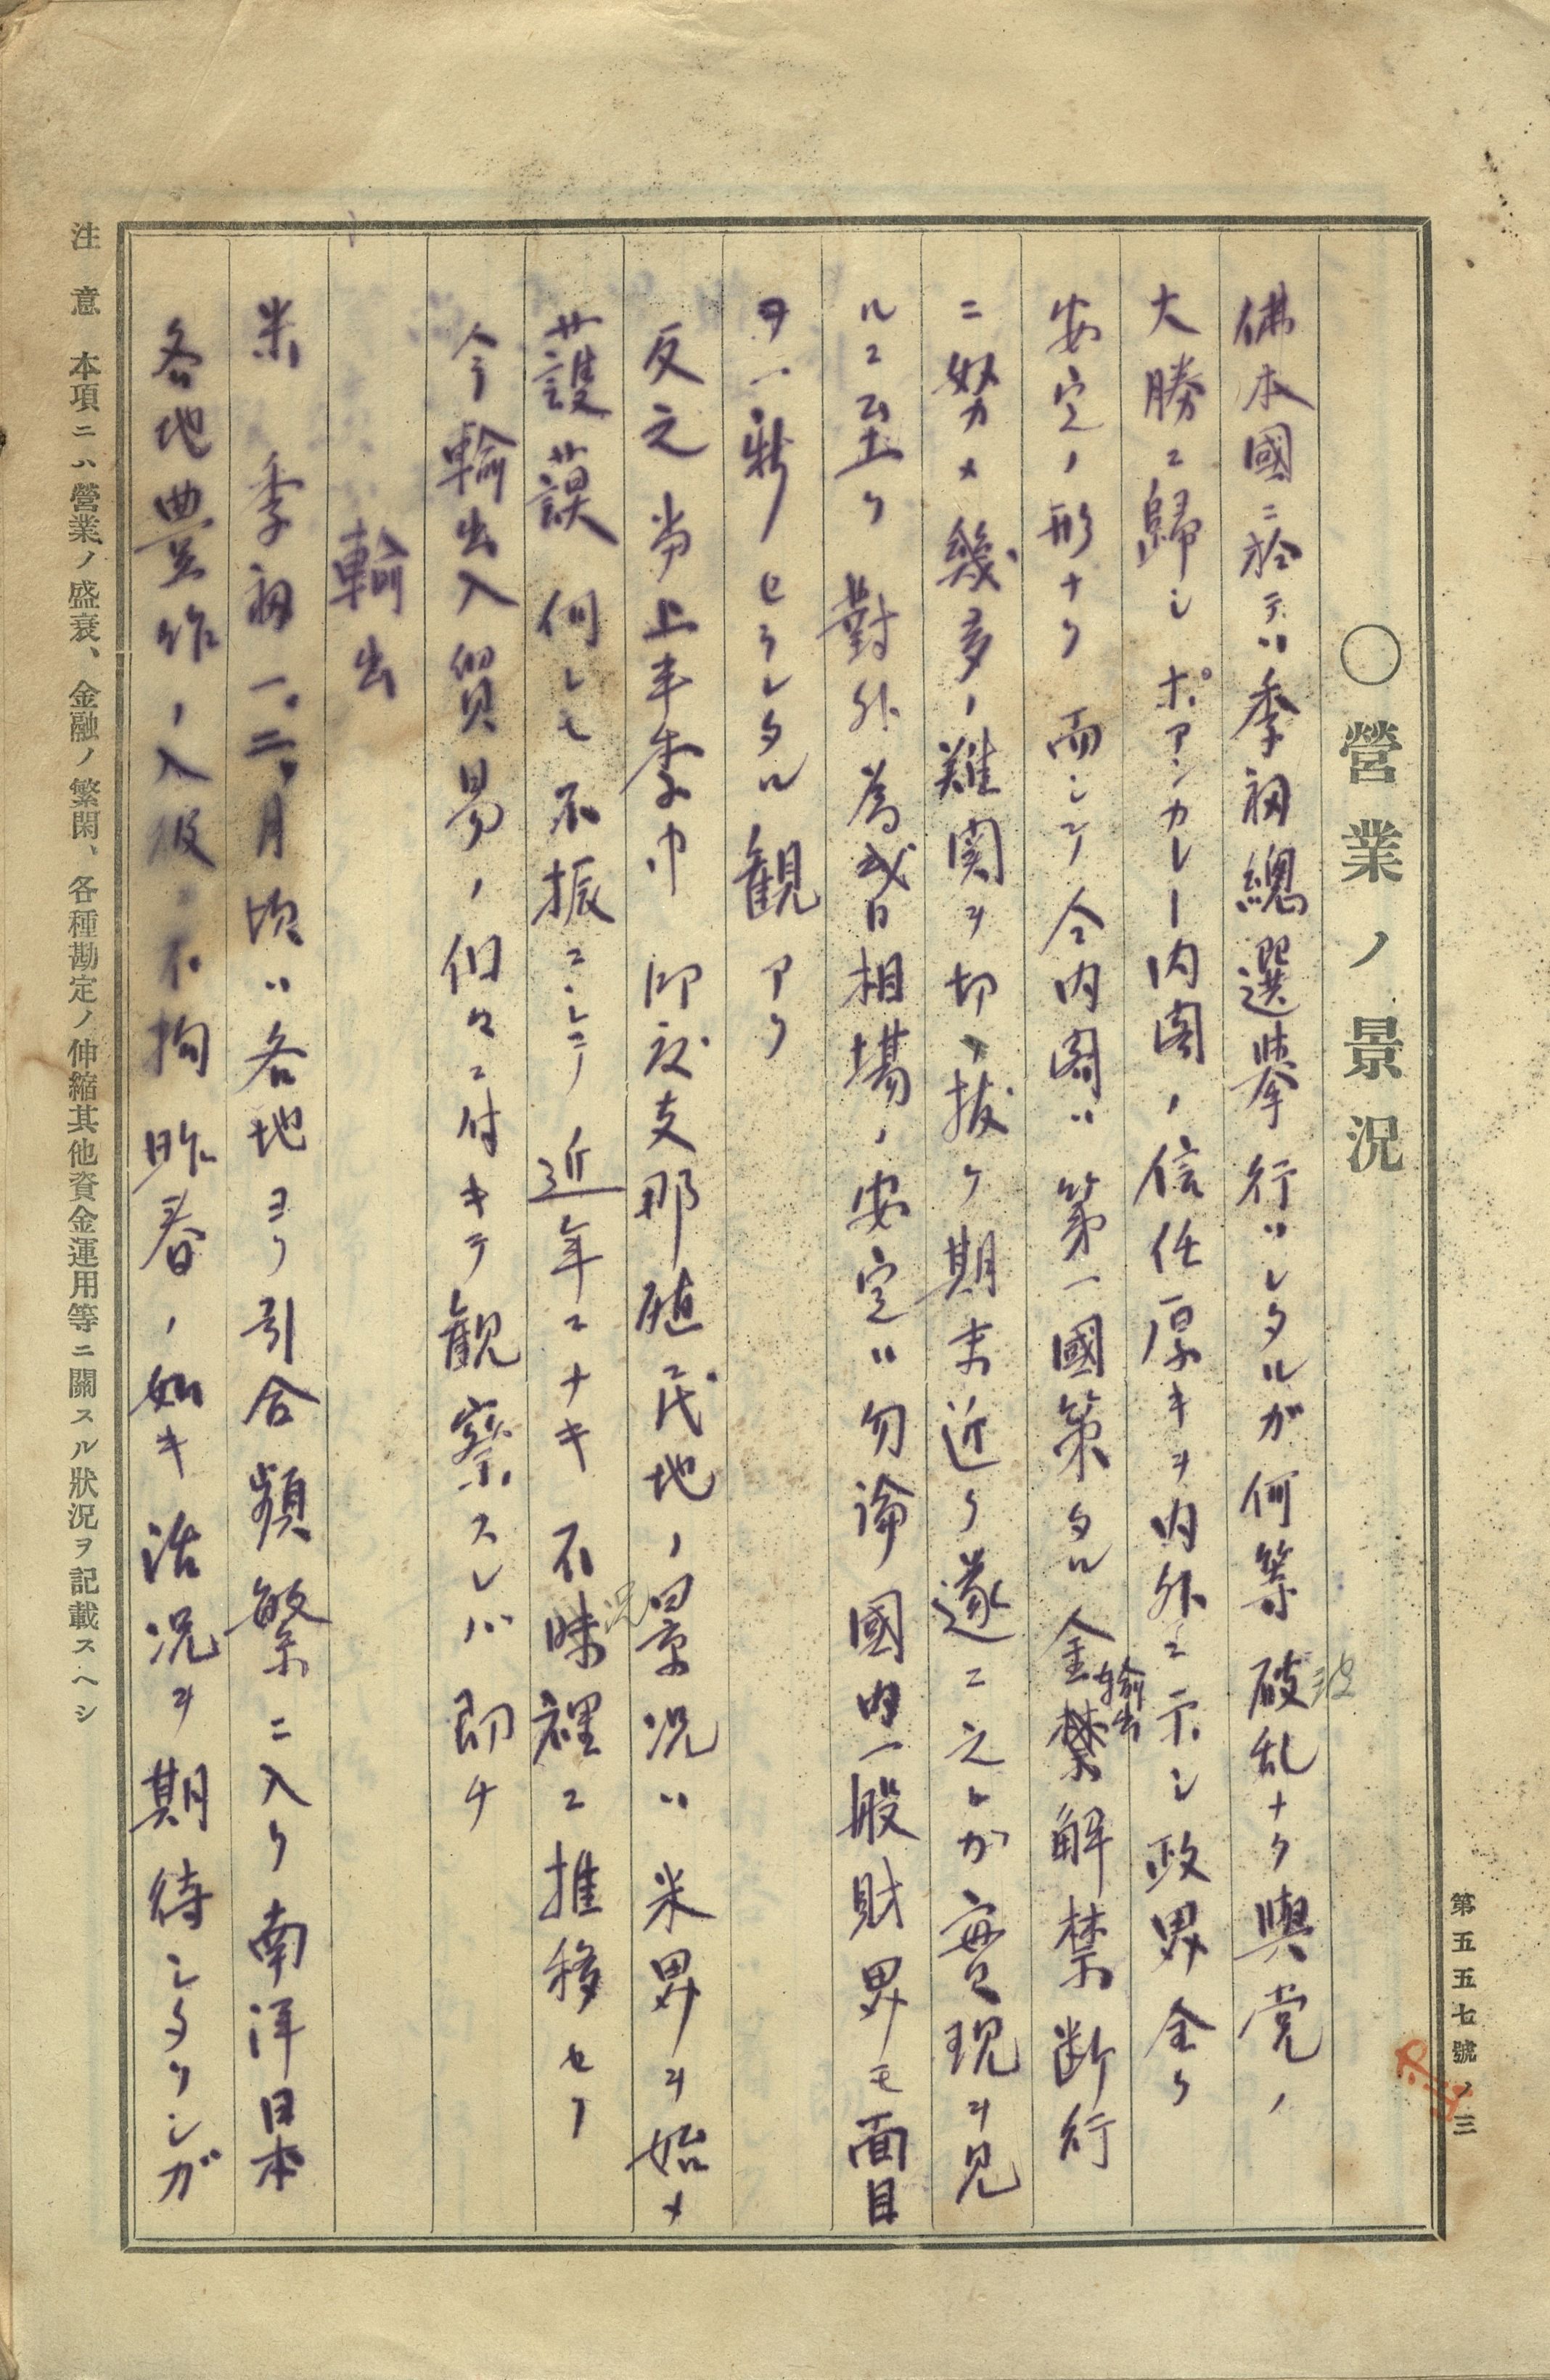 第五五七號ノ三
◯營業ノ景況
佛本國ニ於テハ季初總選擧行ハレタルガ何等破乱ナク與党ノ
波
大勝ニ歸シポアンカレー内閣ノ信任厚キヲ内外ニ示シ政界全ク
安定ノ形ナリ而シテ今内閣ハ第一國策タル金禁解禁断行
輸出
ニ努メ幾多ノ難関ヲ切リ抜ケ期末近ク遂ニ之レガ實現ヲ見
ルニ至リ對外為替相場ノ安定ハ勿論國内一般財界モ面目
ヲ一新セラレタル観アリ
反之当上半季中印度支那殖民地ノ景況ハ米界ヲ始メ
護謨何レモ不振ニシテ近年ニナキ不味裡ニ推移セリ
況
今輸出入貿易ノ個々ニ付キテ観察スレバ即チ
輸出
米 季初一、二月頃ハ各地ヨリ引合頻繁ニ入リ南洋日本
各地豊作ノ入報ニ不拘昨春ノ如キ活況ヲ期待シタリシガ
注意 本項ニハ營業ノ盛衰、金融ノ繁閑、各種勘定ノ伸縮其他資金運用等ニ關スル狀況ヲ記載スヘシ